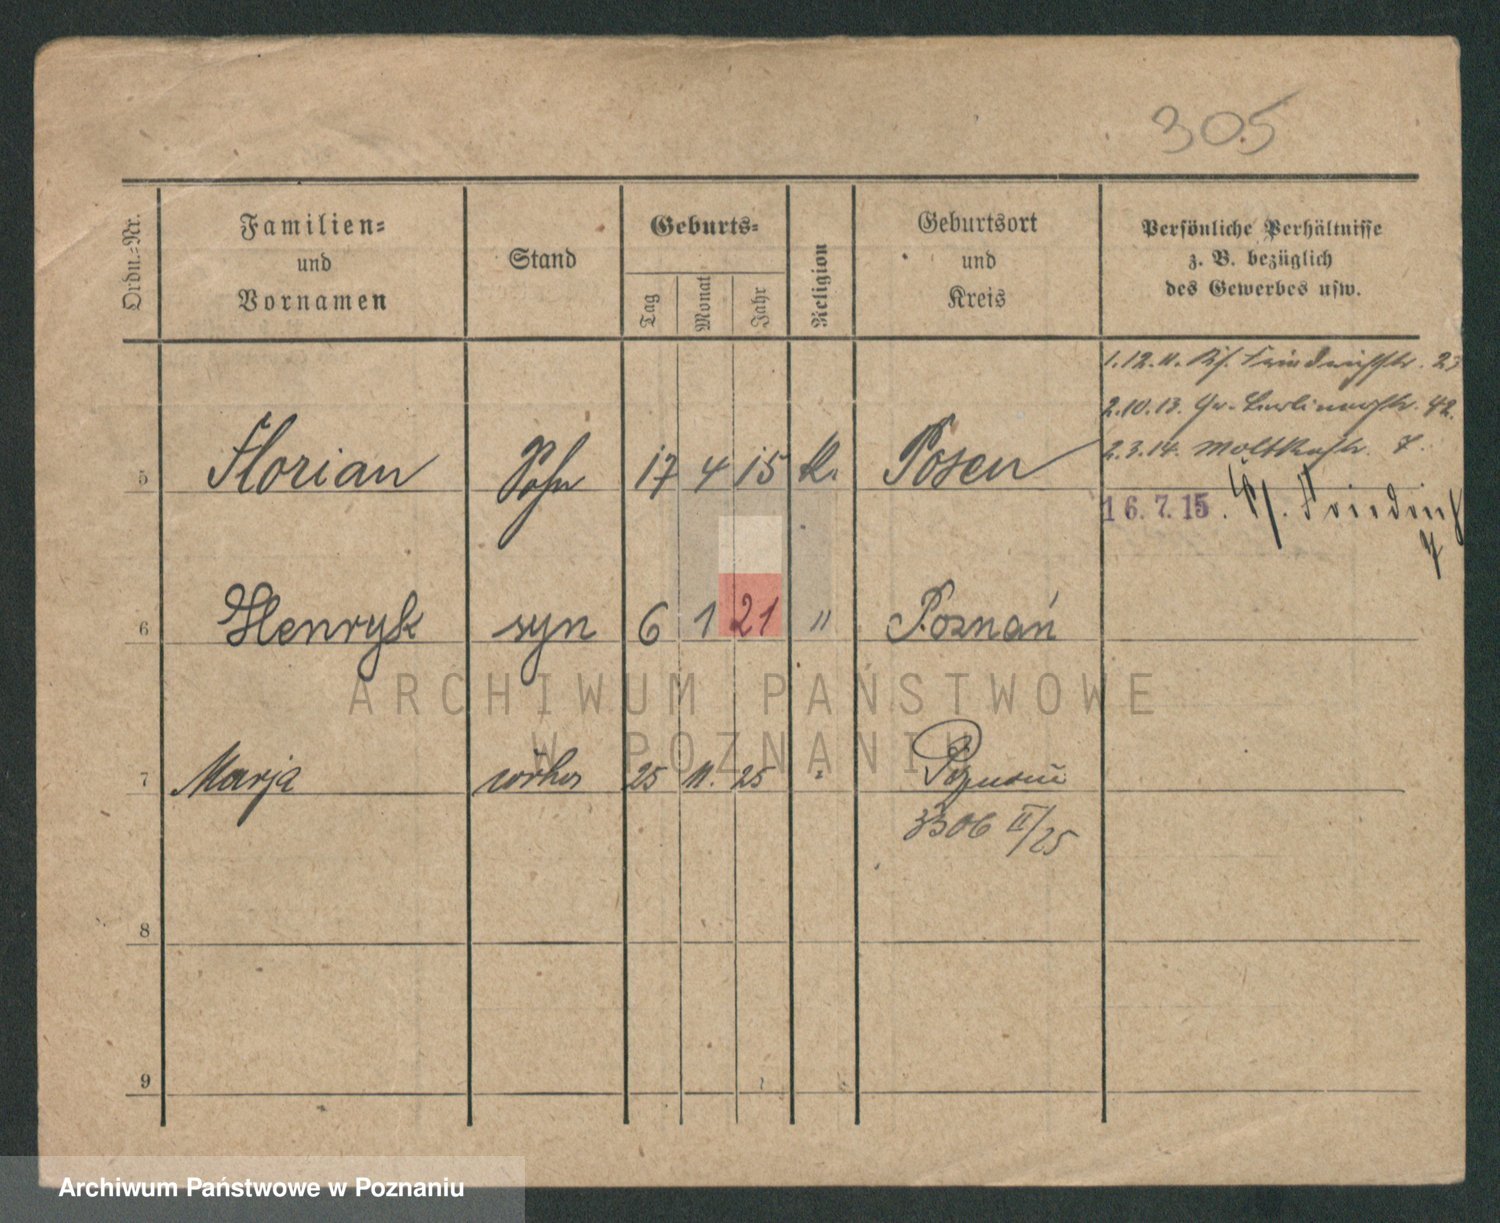 305
Ordn.-Nr.
Familien-
und
Vornamen
Stand
Geburts-
Tag
Monat
Jahr
Religion
Geburtsort
und
Kreis
Persönliche Verhältnisse
z. B. bezüglich
des Gewerbes usw.
1.12.11. Friedrichstr. 23
2.10.13. Gr. Berlinerstr. 42.
2.3.14. Moltkestr. 7.
5 Florian Sohn 17 4 15 k. Posen
16.7.15. Friedrich
6 Henryk syn 6 1 21 " Poznań
ARCHIWUM PAŃSTWOWE
W POZNANIU
7 Marja córka 25 11. 25 " Poznań
3306 II/25
8
9
Archiwum Państwowe w Poznaniu